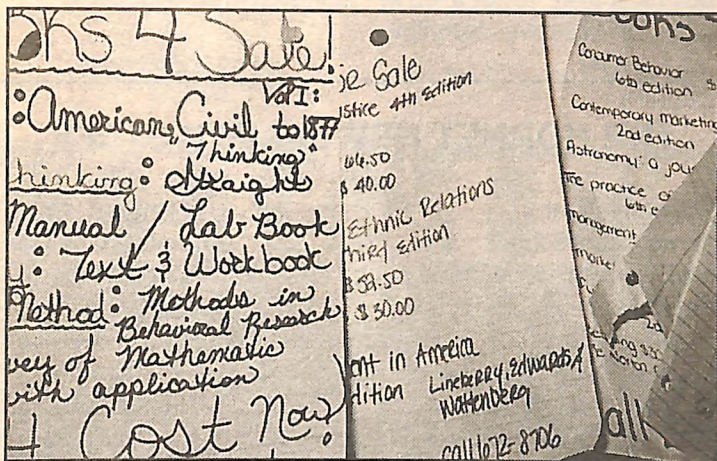 oks 4 Sale!
Vol I:
: American, Civil to 1877
"Thinking"
hinking: Straight
Manual / Lab Book
y: Text & Workbook
Method: Methods in
Behavioral Research
vey of Mathematic
with application
4 Cost Now!
se Sale
ustice 4th Edition
$ 40.00
Ethnic Relations
Third Edition
$ 30.00
ent in America
dition Lineberry, Edwards &
Wattenberg
call 672-8706
ooks
Consumer Behavior
6th edition
Contemporary marketing
2nd edition
Astronomy: a jou
The practice of
6th e
management
market
all